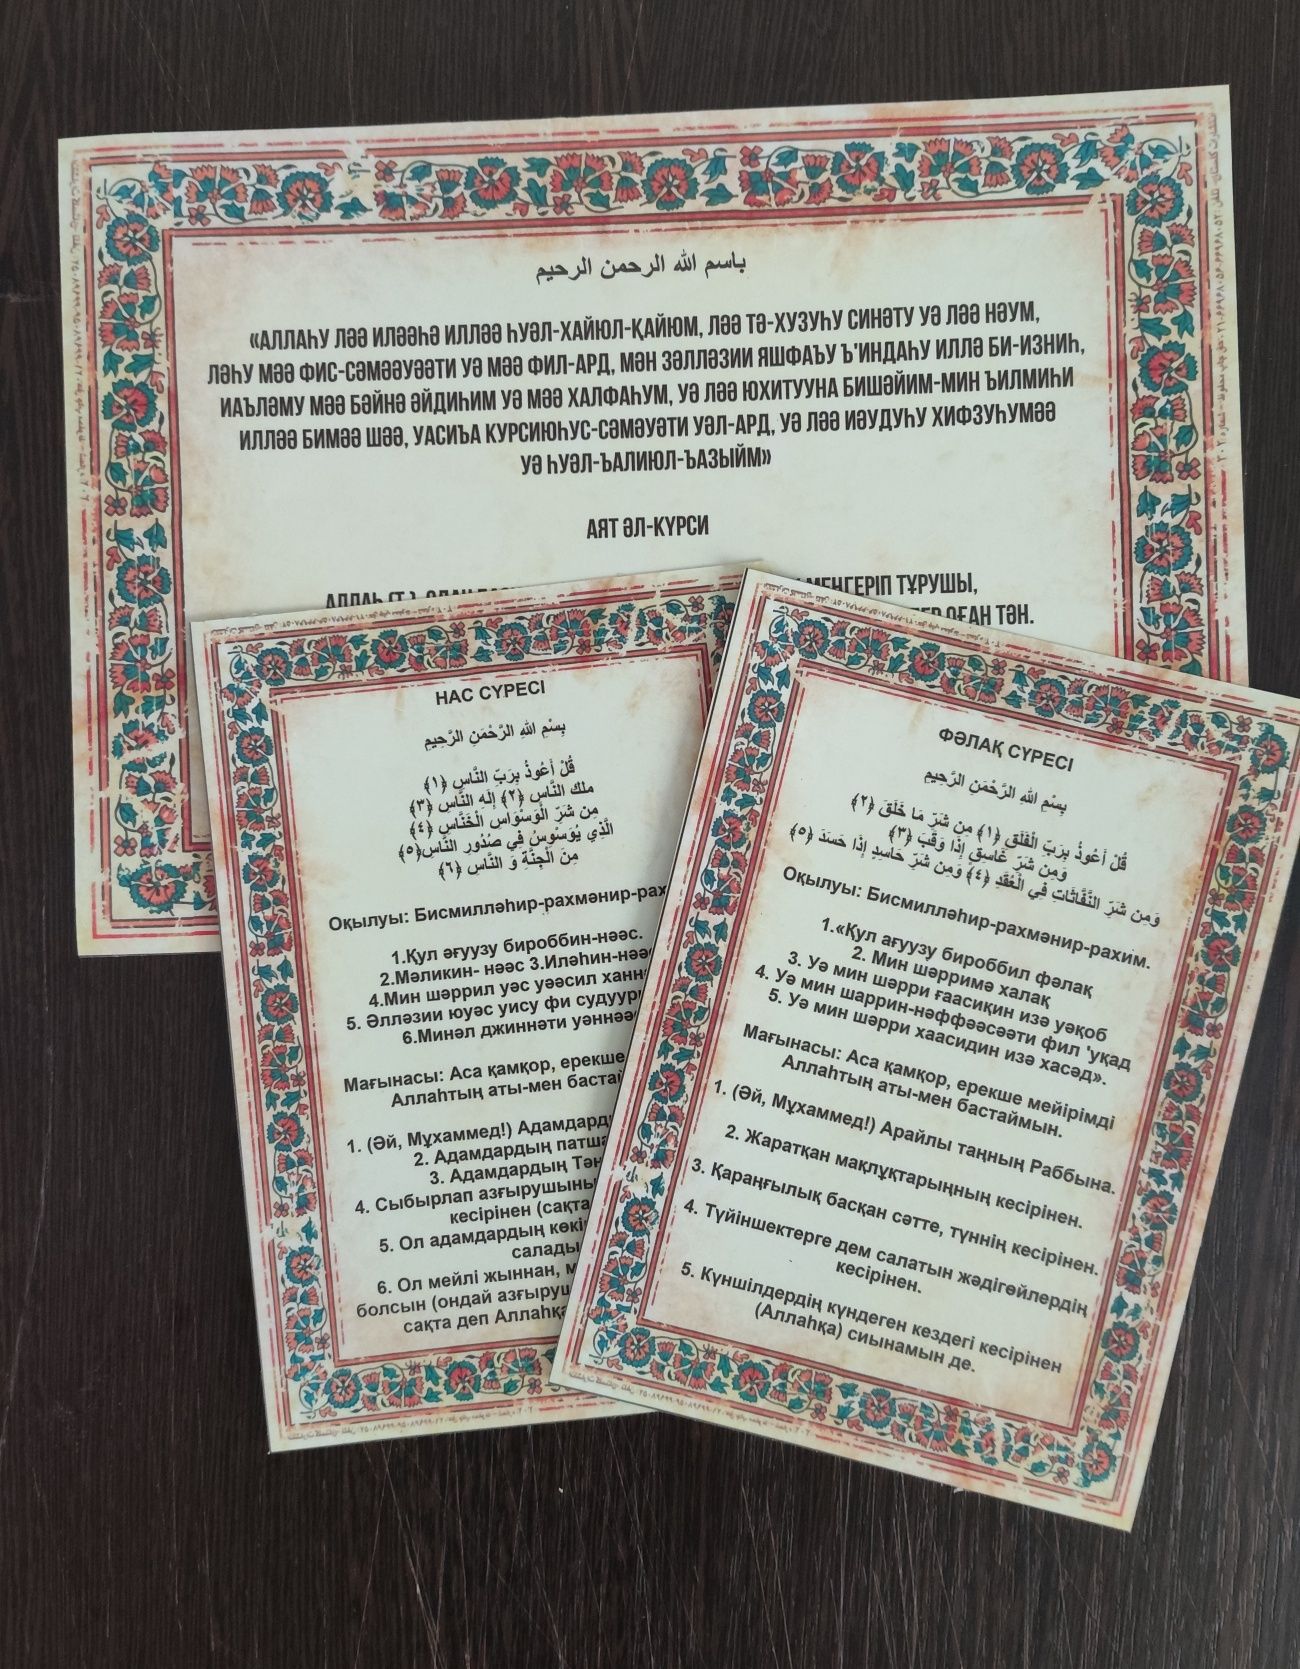 باسم الله الرحمن الرحيم
«АЛЛАҺУ ЛӘӘ ИЛӘӘҺӘ ИЛЛӘӘ ҺУӘЛ-ХАЙЮЛ-ҚАЙЮМ, ЛӘӘ ТӘ-ХУЗУҺУ СИНӘТУ УӘ ЛӘӘ НӘУМ,
ЛӘҺУ МӘӘ ФИС-СӘМӘӘУӘӘТИ УӘ МӘӘ ФИЛ-АРД, МӘН ЗӘЛЛӘЗИИ ЯШФАЪУ Ъ'ИНДАҺУ ИЛЛӘ БИ-ИЗНИҺ,
ИАЪЛӘМУ МӘӘ БӘЙНӘ ӘЙДИҺИМ УӘ МӘӘ ХАЛФАҺУМ, УӘ ЛӘӘ ЮХИТУУНА БИШӘЙИМ-МИН ЪИЛМИҺИ
ИЛЛӘӘ БИМӘӘ ШӘӘ, УАСИЪА КУРСИЮҺУС-СӘМӘУӘТИ УӘЛ-АРД, УӘ ЛӘӘ ИӘУДУҺУ ХИФЗУҺУМӘӘ
УӘ ҺУӘЛ-ЪАЛИЮЛ-ЪАЗЫЙМ»
АЯТ ӘЛ-КҮРСИ
МЕҢГЕРІП ТҰРУШЫ,
ОҒАН ТӘН.
НАС СҮРЕСІ
بِسْمِ اللهِ الرَّحْمَنِ الرَّحِيمِ
قُلْ أَعُوذُ بِرَبِّ النَّاسِ ﴿١﴾
ملك النَّاسِ ﴿٢﴾ إِلَهِ النَّاسِ ﴿٣﴾
مِن شَرِّ الْوَسْوَاسِ الْخَنَّاسِ ﴿٤﴾
الَّذِي يُوَسْوِسُ فِي صُدُورِ النَّاسِ﴿٥﴾
مِنَ الْجِنَّةِ وَ النَّاسِ ﴿٦﴾
Оқылуы: Бисмилләһир-рахмәнир-рах
1.Қул әғуузу бироббин-нәәс.
2.Мәликин- нәәс 3.Иләһин-нәә
4.Мин шәррил уәс уәәсил ханн
5. Әлләзии юуәс уису фи судуур
6.Минәл джиннәти уәннәә
Мағынасы: Аса қамқор, ерекше
Аллаһтың аты-мен баста
1. (Әй, Мұхаммед!) Адамдард
2. Адамдардың патша
3. Адамдардың Тәң
4. Сыбырлап азғырушыны
кесірінен (сақта
5. Ол адамдардың көкі
салады
6. Ол мейлі жыннан, м
болсын (ондай азғыруш
сақта деп Аллаһқа
ФӘЛАҚ СҮРЕСІ
بِسْمِ اللهِ الرَّحْمَنِ الرَّحِيمِ
قُلْ أَعُوذُ بِرَبِّ الْفَلَقِ ﴿١﴾ مِن شَرِّ مَا خَلَقَ ﴿٢﴾
وَمِن شَرِّ غَاسِقٍ إِذَا وَقَبَ ﴿٣﴾
وَمِن شَرِّ النَّفَّاثَاتِ فِي الْعُقَدِ ﴿٤﴾ وَمِن شَرِّ حَاسِدٍ إِذَا حَسَدَ ﴿٥﴾
Оқылуы: Бисмилләһир-рахмәнир-рахим.
1.«Қул ағуузу бироббил фәлақ
2. Мин шәрримә халақ
3. Уә мин шәрри ғаасиқин изә уәқоб
4. Уә мин шаррин-нәффәәсәәти фил 'уқад
5. Уә мин шәрри хаасидин изә хасәд».
Мағынасы: Аса қамқор, ерекше мейірімді
Аллаһтың аты-мен бастаймын.
1. (Әй, Мұхаммед!) Арайлы таңның Раббына.
2. Жаратқан мақлұқтарыңның кесірінен.
3. Қараңғылық басқан сәтте, түннің кесірінен.
4. Түйіншектерге дем салатын жәдігөйлердің
кесірінен.
5. Күншілдердің күндеген кездегі кесірінен
(Аллаһқа) сиынамын де.